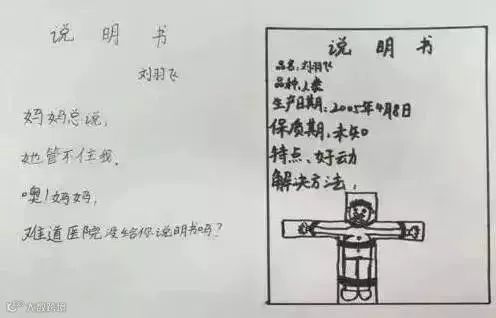 说明书
刘羽飞
妈妈总说,
她管不住我,
噢!妈妈,
难道医院没给你说明书吗?
说明书
品名:刘羽飞
品种:人类
生产日期:2005年4月8日
保质期:未知
特点:好动
解决方法:
大数跨境